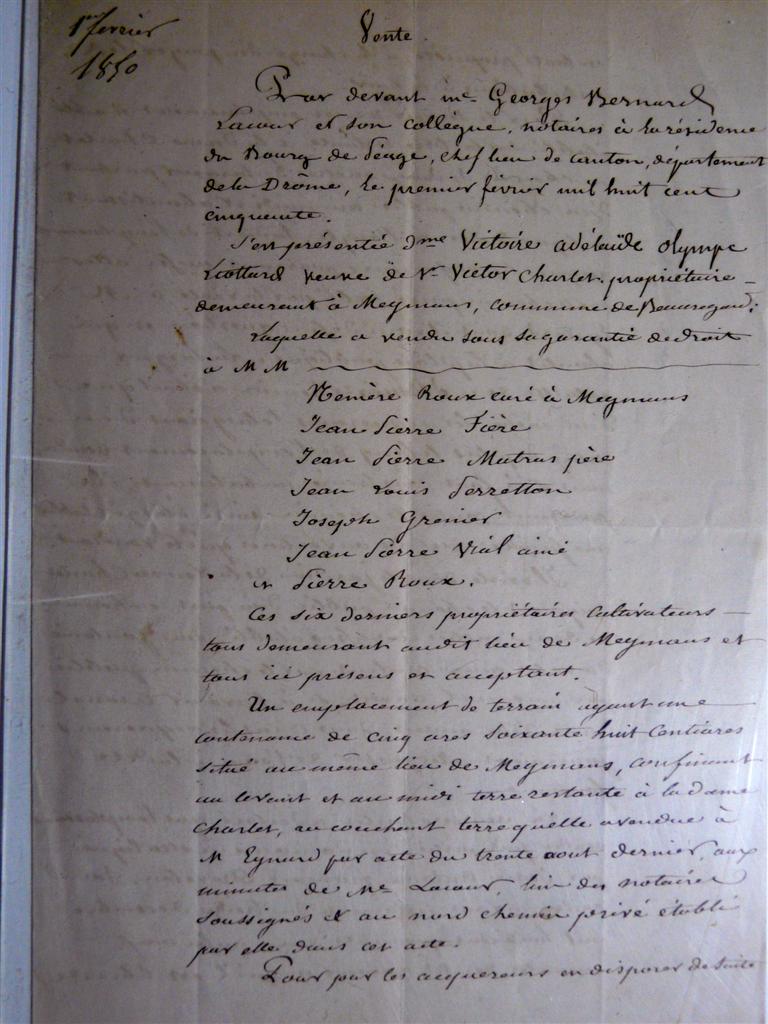 1er février
1850
Vente
Par devant me Georges Bernard
Lacour et son collègue, notaires à la résidence
du Bourg de Péage, chef lieu de canton, département
de la Drôme, le premier février mil huit cent
cinquante.
S'est présentée dme Victoire adélaïde olympe
Liottard veuve de Mr Victor Charlet, propriétaire
demeurant à Meymans, commune de Beauregard;
Laquelle a vendu sous sa garantie de droit
à MM
Roux curé à Meymans
Jean Pierre Fière
Jean Pierre Matras père
Jean Louis Perretton
Joseph Grenier
Jean Pierre Vial ainé
et Pierre Roux.
Ces six derniers propriétaires cultivateurs
tous demeurant audit lieu de Meymans et
tous ici présens et acceptant.
Un emplacement de terrain ayant une
contenance de cinq ares soixante huit Centiares
situé au même lieu de Meymans, confinant
au levant et au midi terre restante à la dame
Charlet, au couchant terre qu'elle a vendue à
M Eynard par acte du trente aout dernier, aux
minutes de Me Lacour, l'un des notaires
soussignés et au nord chemin privé établi
par elle dans cet acte.
Pour par les acquereurs en disposer de suite